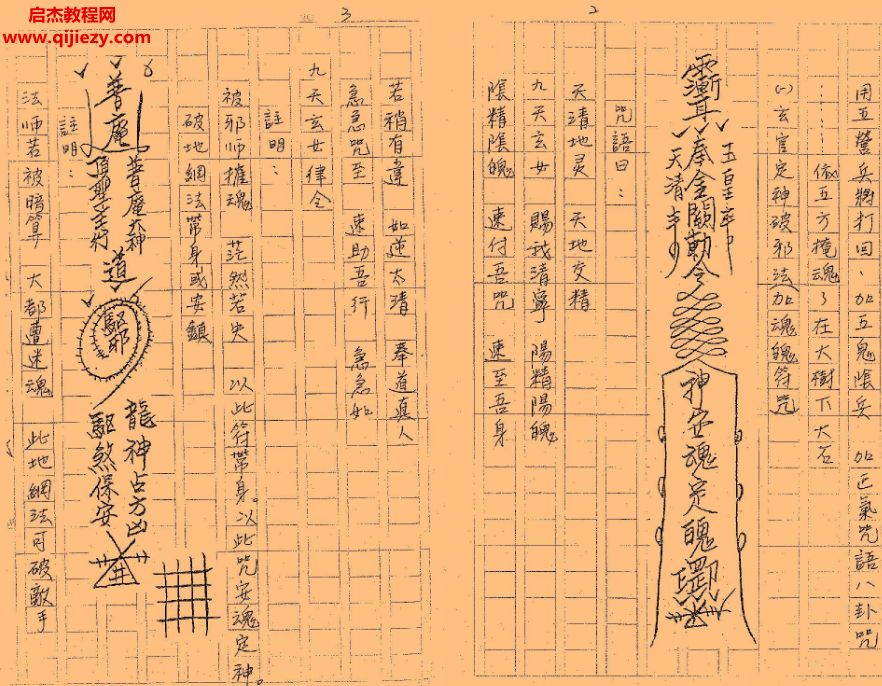 启杰教程网
www.qijiezy.com
2
用五營兵將打回、加五鬼陰兵 加正氣咒語八卦咒
……做五方掩魂了在大樹下大石
(一)玄官定神破邪法(加魂魄符咒)
玉皇奉
奉金闕勅令
天清奉
神安魂定魄
咒語曰：
天清地灵 天地交精
九天玄女 賜我清寧 陽精陽魄
陰精陰魄 速付吾咒 速至吾身
3
若稍有違 如逆太清 奉道真人
急急咒至 速助吾行 急急如
九天玄女律令
註明：
被邪师攝魂 茫然若失 以此符帶身。以此咒安魂定神。
破地綱法帶身或安鎮
普庵
普庵大神
頂聖奉行
道
驅邪
龍神占方凶
驅煞保安
井
註明：
法師若被暗算 大都遭迷魂 此地網法可破敵手